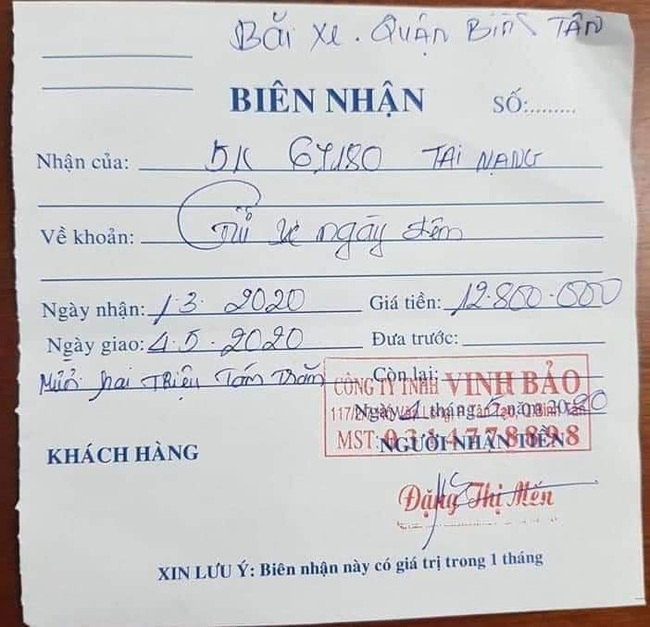 Bãi xe. Quận Bình Tân
BIÊN NHẬN SỐ:.........
Nhận của: 5K 67180 TAI NẠNG
Về khoản: Gửi xe ngày đêm
Ngày nhận: 1.3.2020 Giá tiền: 12.800.000
Ngày giao: 4.5.2020 Đưa trước:
Mười hai Triệu Tám Trăm Còn lại:
CÔNG TY TNHH VINH BẢO
Ngày 4 tháng 5 năm 2020
MST:
KHÁCH HÀNG NGƯỜI NHẬN TIỀN
Đặng Thị Mến
XIN LƯU Ý: Biên nhận này có giá trị trong 1 tháng